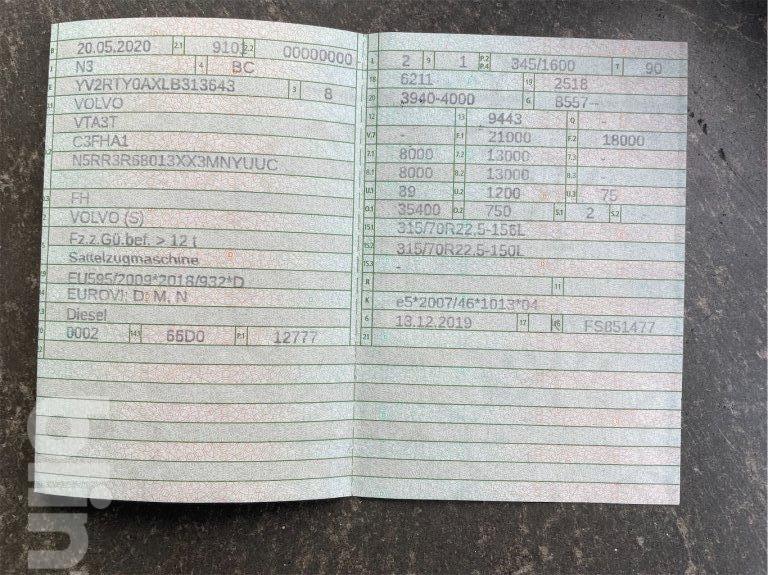 B 20.05.2020 2.1 9101 2.2 00000000
J N3 4 BC
E YV2RTY0AXLB313643 3 8
VOLVO
VTA3T
C3FHA1
N5RR3R68013XX3MNYUUC
FH
VOLVO (S)
Fz.z.Gü.bef. > 12 t
Sattelzugmaschine
EU595/2009*2018/932*D
EUROVI; D; M, N
Diesel
0002 14.1 66D0 P.1 12777
L 2 9 1 P.2 P.4 345/1600 T 90
18 6211 19 2518
20 3940-4000 G 8557--
12 - 13 9443 Q -
V.7 - F.1 21000 F.2 18000
7.1 8000 7.2 13000 7.3 -
8.1 8000 8.2 13000 8.3 -
U.1 89 U.2 1200 U.3 75
O.1 35400 O.2 750 S.1 2 S.2 -
15.1 315/70R22,5-156L
15.2 315/70R22,5-150L
15.3 -
R 11
K e5*2007/46*1013*04
6 13.12.2019 17 16 FS851477
21
bilin